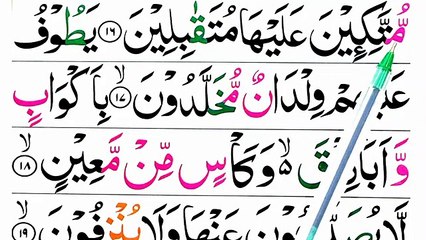 مُّتَّكِـِٕيۡنَ عَلَيۡهَا مُتَقٰبِلِيۡنَ ﴿۱۶﴾ يَطُوۡفُ
عَلَيۡهِمۡ وِلۡدَانٌ مُّخَلَّدُوۡنَ ﴿ۙ۱۷﴾ بِاَكۡوَابٍ
وَّاَبَارِيۡقَ ۙ وَكَاۡسٍ مِّنۡ مَّعِيۡنٍ ﴿ۙ۱۸﴾
لَّا يُصَدَّعُوۡنَ عَنۡهَا وَلَا يُنۡزِفُوۡنَ ﴿ۙ۱۹﴾